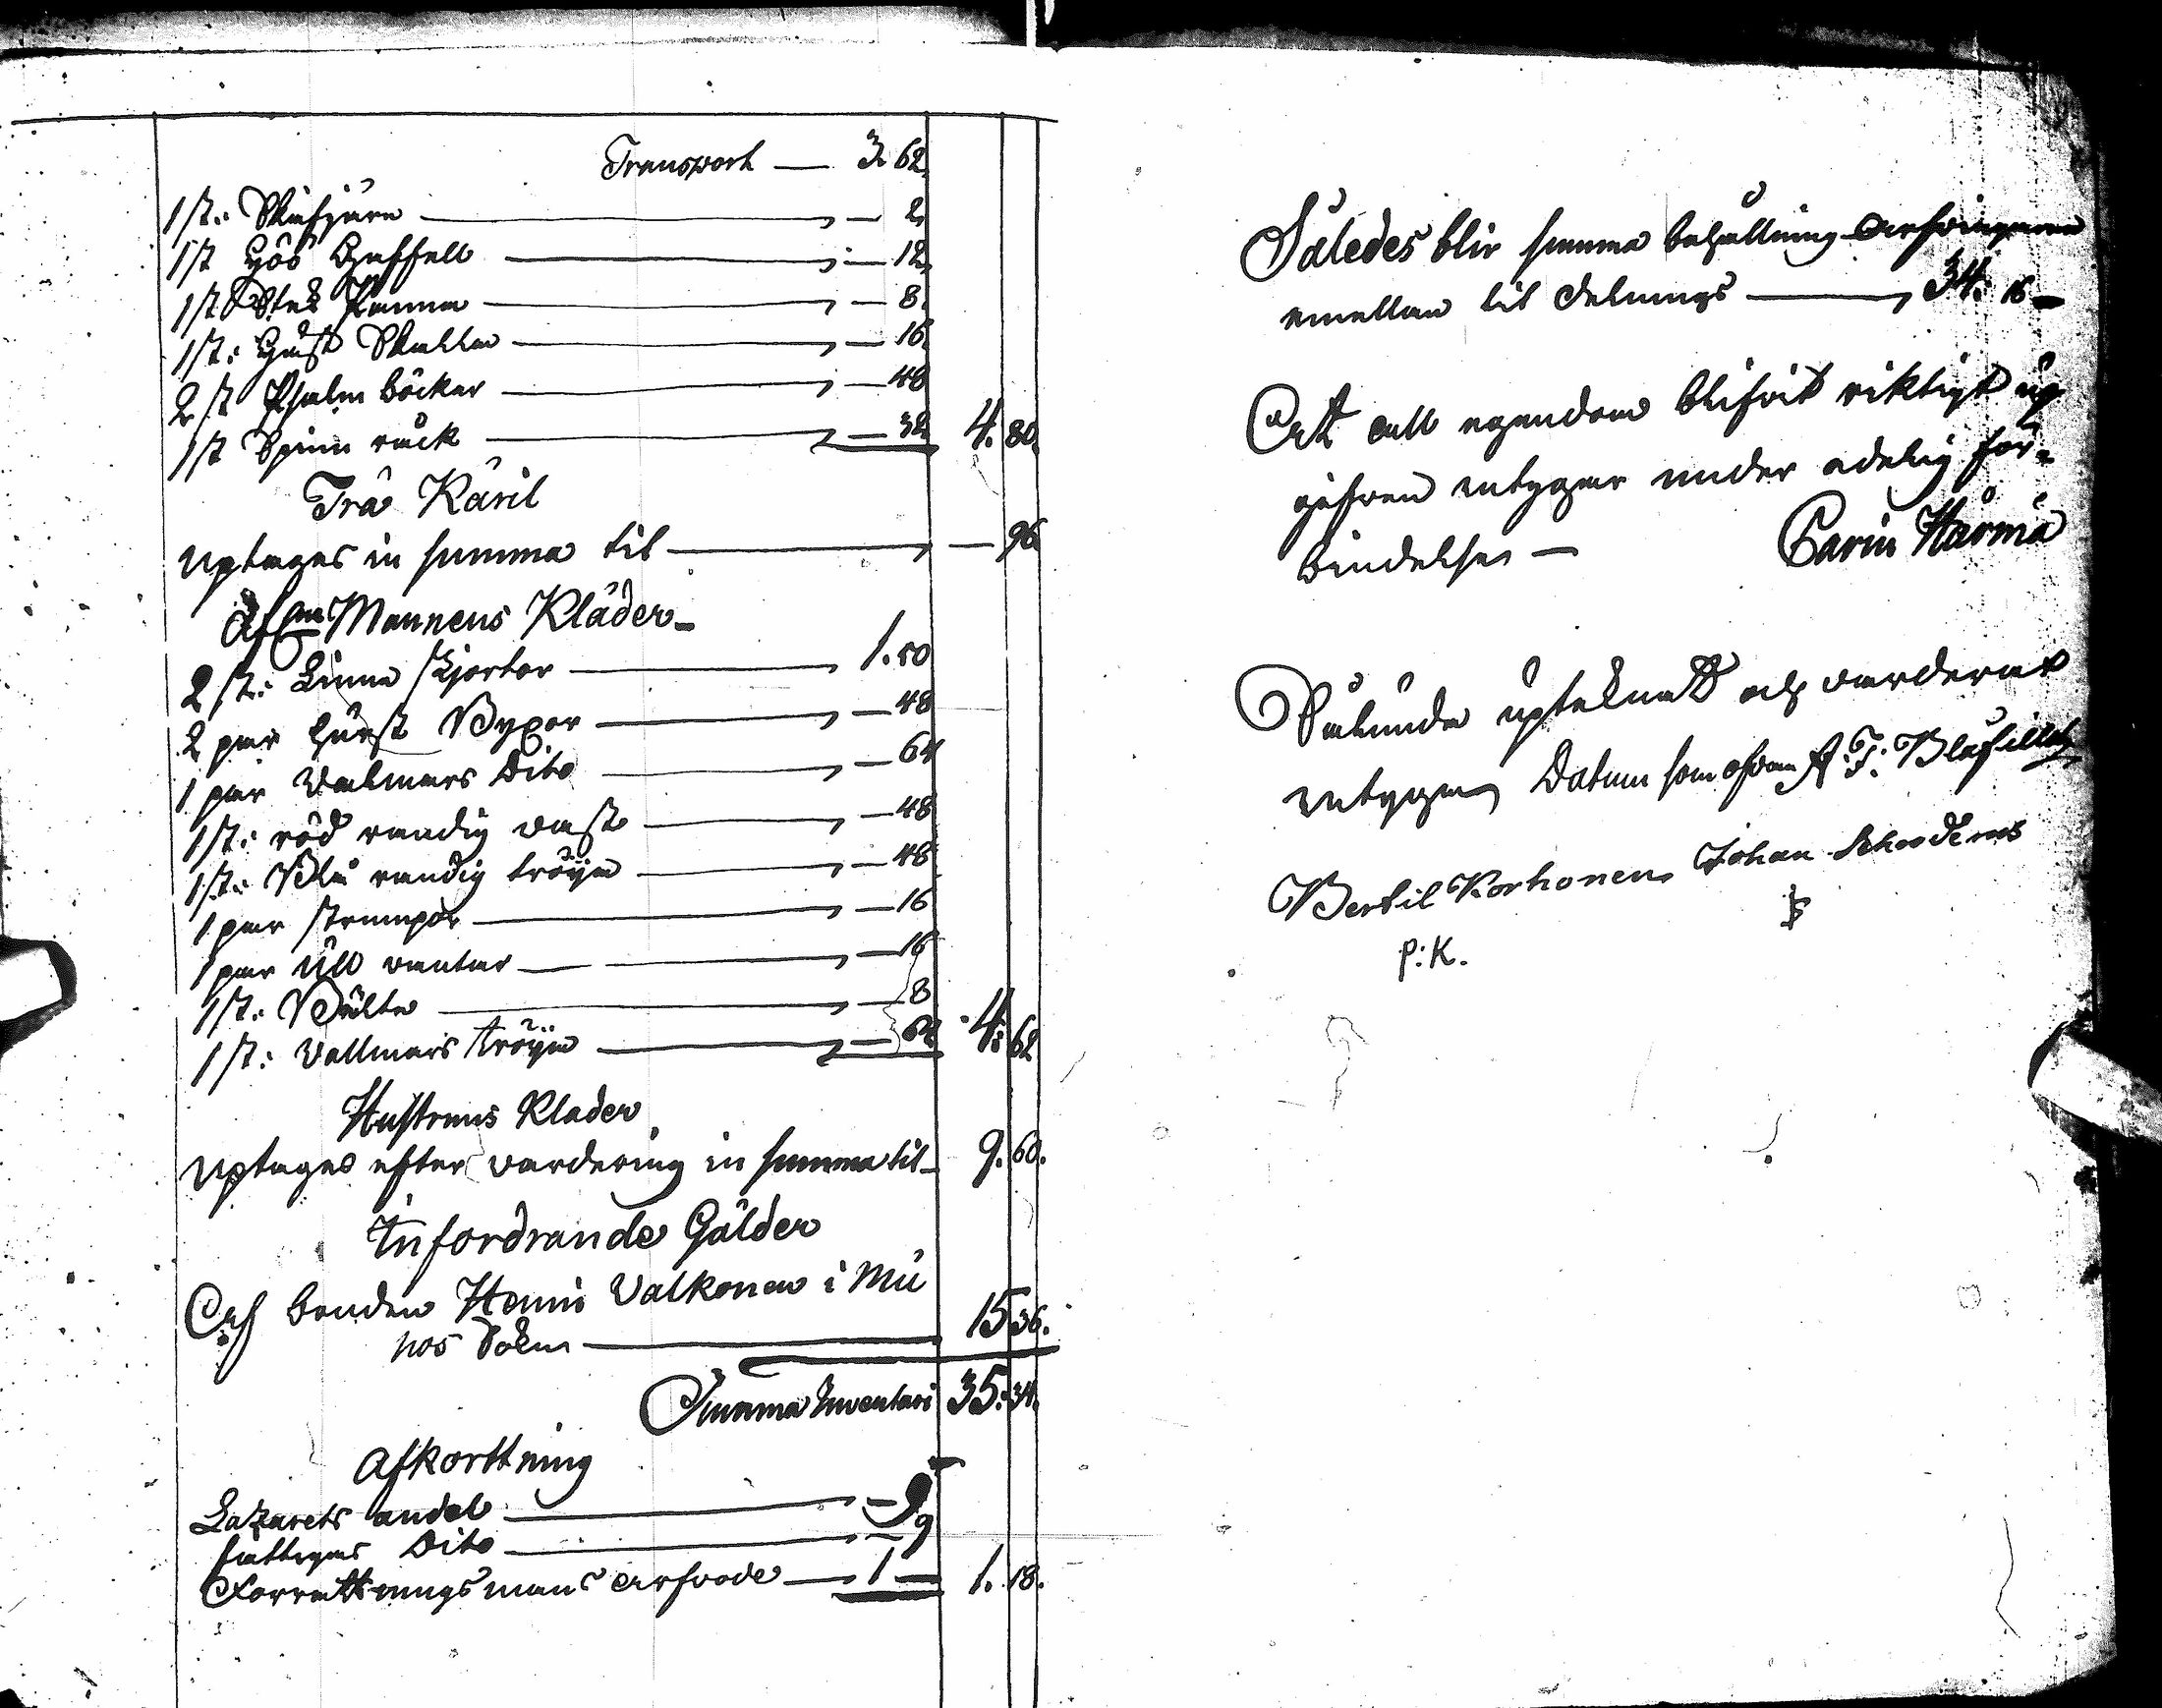 Transport — 3. 62.
1 st: Skafjärn — 2.
1 st Hös Gaffell — 12.
1 st Stek Panna — 8.
1 st: Häst Skälla — 16.
2 st Psalm böcker — 48
1 st Spinn råck — 32. 4. 80.
Trä Käril
uptages in summa til — 96.
Afl. Mannens Kläder
2 st: Linne skjortor — 1. 50
2 par hurst Byxor — 48
1 par Valmars Dito — 64
1 st: röd randig väst — 48
1 st: Blå randig tröÿa — 48
1 par strumpor — 16
1 par Ull vantar — 16
1 st: Bälte — 8
1 st: Vallmars tröÿa — 64 4: 62
Hustruns Klader
uptages efter värdering in summa til 9. 60.
Infordrande Gälder
Af bonden Heniri Valkonen i Mu
hos Sokn — 15 36.
Summa Inventari 35: 34.
Afkorttning
Lazarets andel — 9
fattigas Dito — 9
Forrättnings mans arfvode — 1 — 1. 18.
Således blir summa behållning arfvingarne
emellan til delnings — 34: 16 —
Att all egendom blifvit riktigt up
gifven intygar under edelig för-
bindelse — Carin Härmä
Sålunda uptecknatt och värderat
intygar Datum som ofvan A. F: Blåfield
Bertil Korhonen Johan Schoderus
P: K.